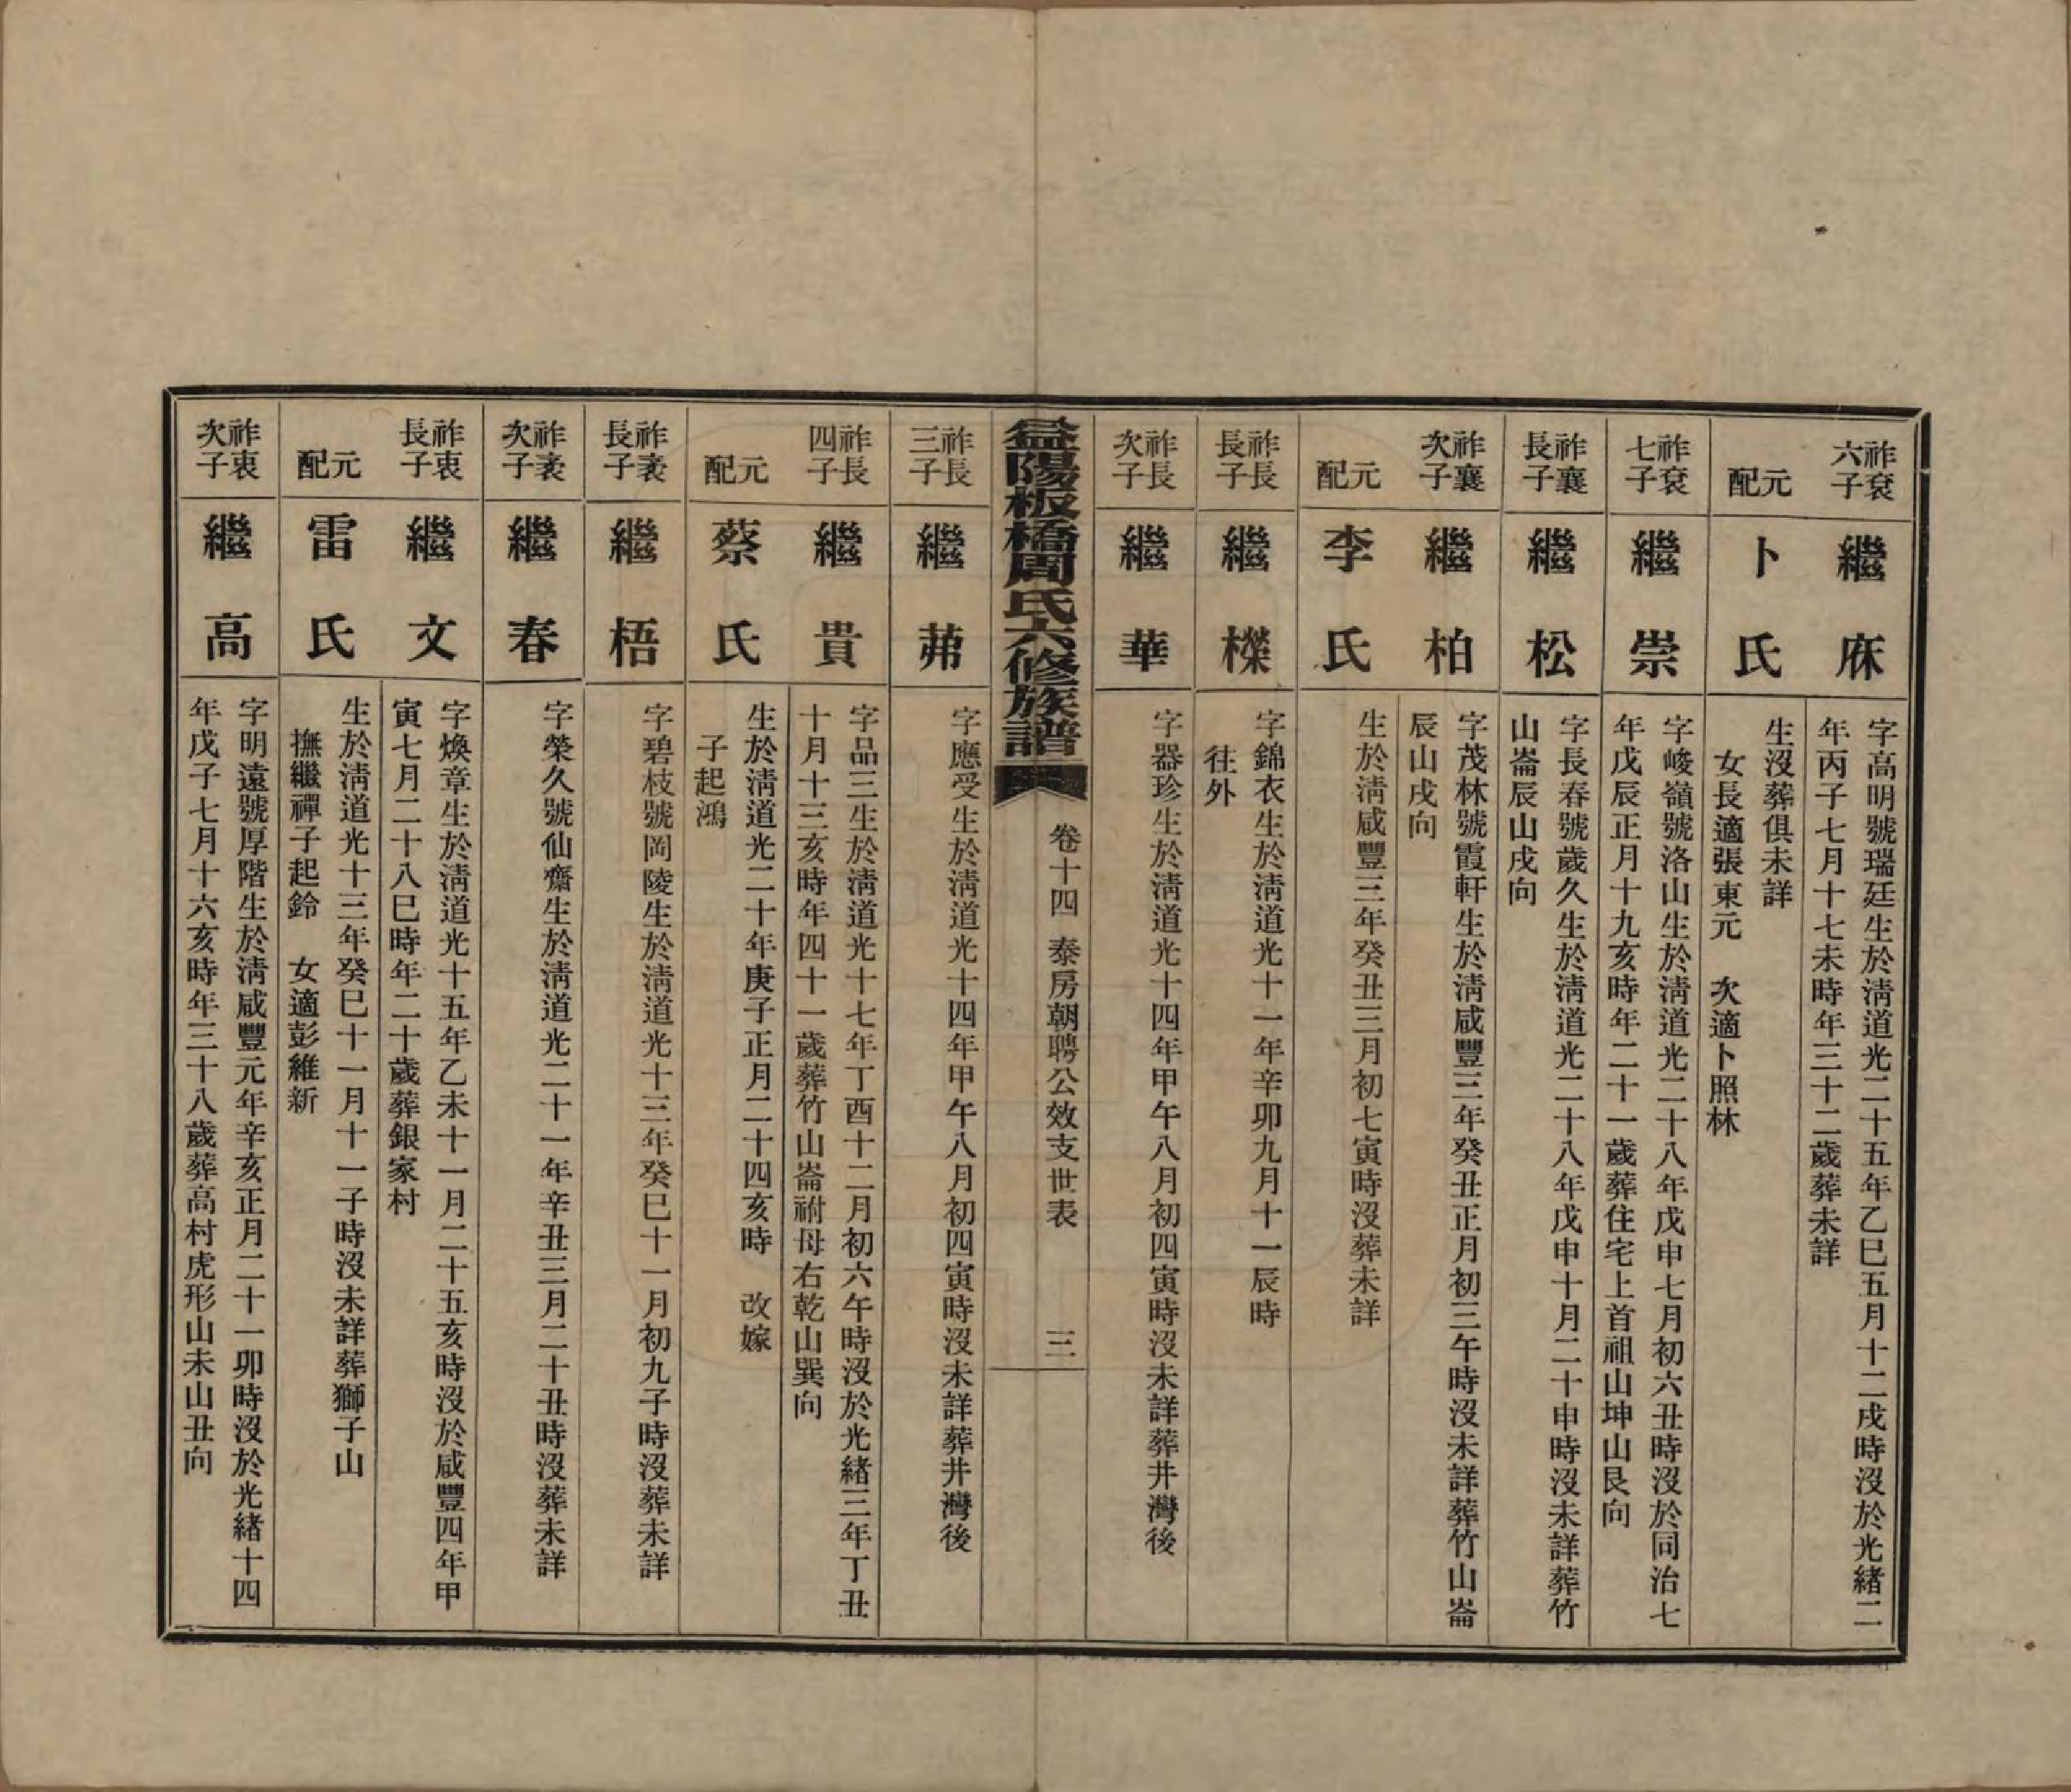 祚袞六子
繼庥
字高明號瑞廷生於清道光二十五年乙巳五月十二戌時沒於光緒二
年丙子七月十七未時年三十二歲葬未詳
元配
卜氏
生沒葬俱未詳
女長適張東元　次適卜照林
祚袞七子
繼崇
字峻嶺號洛山生於清道光二十八年戊申七月初六丑時沒於同治七
年戊辰正月十九亥時年二十一歲葬住宅上首祖山坤山艮向
祚襄長子
繼松
字長春號歲久生於清道光二十八年戊申十月二十申時沒未詳葬竹
山崙辰山戌向
祚襄次子
繼柏
字茂林號霞軒生於清咸豐三年癸丑正月初三午時沒未詳葬竹山崙
辰山戌向
元配
李氏
生於清咸豐三年癸丑三月初七寅時沒葬未詳
祚長長子
繼檪
字錦衣生於清道光十一年辛卯九月十一辰時
往外
祚長次子
繼華
字器珍生於清道光十四年甲午八月初四寅時沒未詳葬井灣後
益陽板橋周氏六修族譜
卷十四　泰房朝聘公效支世表
三
祚長三子
繼茀
字應受生於清道光十四年甲午八月初四寅時沒未詳葬井灣後
祚長四子
繼貴
字品三生於清道光十七年丁酉十二月初六午時沒於光緒三年丁丑
十月十三亥時年四十一歲葬竹山崙祔母右乾山巽向
元配
蔡氏
生於清道光二十年庚子正月二十四亥時　改嫁
子起鴻
祚袤長子
繼梧
字碧枝號岡陵生於清道光十三年癸巳十一月初九子時沒葬未詳
祚袤次子
繼春
字榮久號仙齋生於清道光二十一年辛丑三月二十丑時沒葬未詳
祚衷長子
繼文
字煥章生於清道光十五年乙未十一月二十五亥時沒於咸豐四年甲
寅七月二十八巳時年二十歲葬銀家村
元配
雷氏
生於清道光十三年癸巳十一月十一子時沒未詳葬獅子山
撫繼禪子起鈴　女適彭維新
祚衷次子
繼高
字明遠號厚階生於清咸豐元年辛亥正月二十一卯時沒於光緒十四
年戊子七月十六亥時年三十八歲葬高村虎形山未山丑向